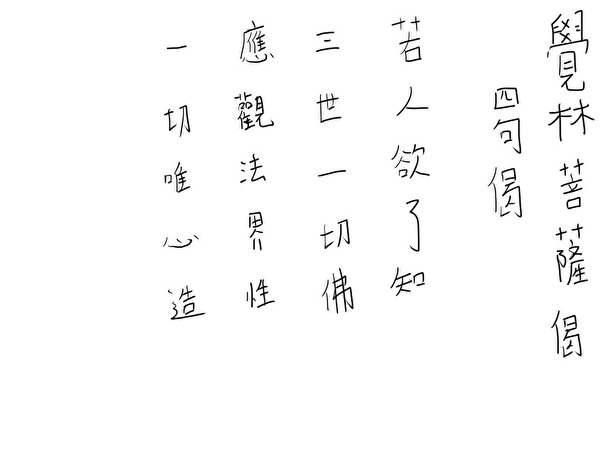 覺林菩薩偈
四句偈
若人欲了知
三世一切佛
應觀法界性
一切唯心造